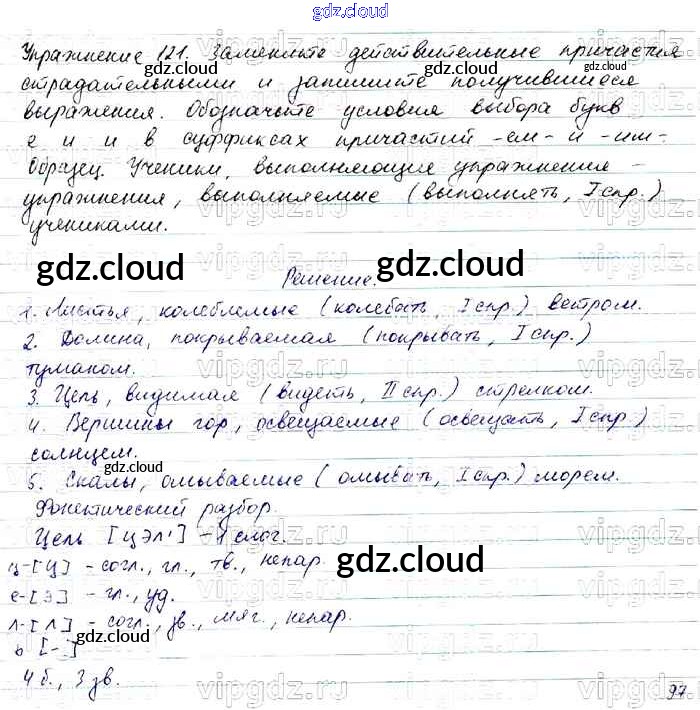 gdz.cloud
Упражнение 121. Замените действительные причастия
страдательными и запишите получившиеся
выражения. Обозначьте условия выбора букв
е и и в суффиксах причастий -ем- и -им-.
Образец. Ученики, выполняющие упражнение -
упражнения, выполняемые (выполнять, I спр.)
учениками.
Решение.
1. Листья, колеблемые (колебать, I спр.) ветром.
2. Долина, покрываемая (покрывать, I спр.)
туманом.
3. Цель, видимая (видеть, II спр.) стрелком.
4. Вершины гор, освещаемые (освещать, I спр.)
солнцем.
5. Скалы, омываемые (омывать, I спр.) морем.
Фонетический разбор.
Цель [цэл'] - 1 слог.
ц-[ц] - согл., гл., тв., непар.
е-[э] - гл., уд.
л-[л] - согл., зв., мяг., непар.
ь [-]
4 б., 3 зв.
97